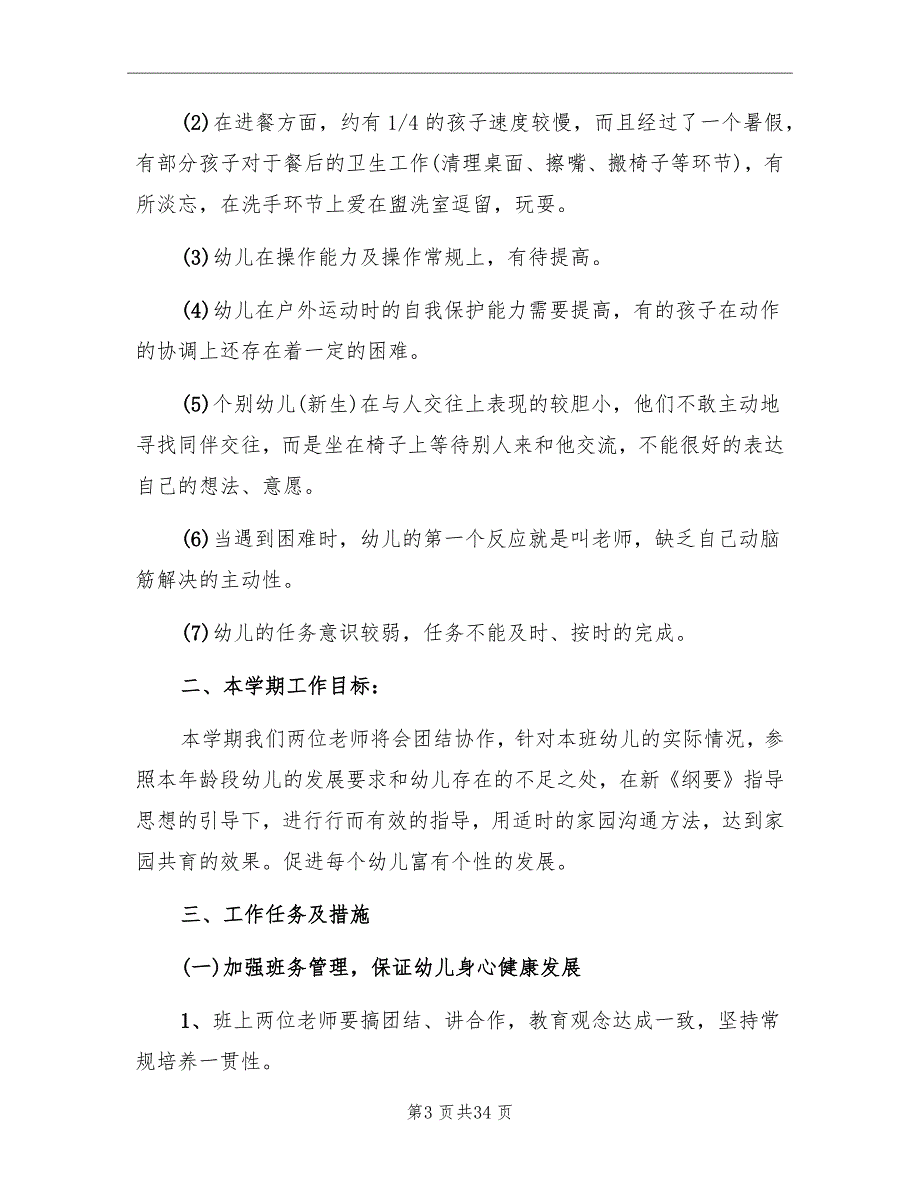 (2)在进餐方面，约有 1/4 的孩子速度较慢，而且经过了一个暑假，
有部分孩子对于餐后的卫生工作(清理桌面、擦嘴、搬椅子等环节)，有
所淡忘，在洗手环节上爱在盥洗室逗留，玩耍。
(3)幼儿在操作能力及操作常规上，有待提高。
(4)幼儿在户外运动时的自我保护能力需要提高，有的孩子在动作
的协调上还存在着一定的困难。
(5)个别幼儿(新生)在与人交往上表现的较胆小，他们不敢主动地
寻找同伴交往，而是坐在椅子上等待别人来和他交流，不能很好的表达
自己的想法、意愿。
(6)当遇到困难时，幼儿的第一个反应就是叫老师，缺乏自己动脑
筋解决的主动性。
(7)幼儿的任务意识较弱，任务不能及时、按时的完成。
二、本学期工作目标：
本学期我们两位老师将会团结协作，针对本班幼儿的实际情况，参
照本年龄段幼儿的发展要求和幼儿存在的不足之处，在新《纲要》指导
思想的引导下，进行行而有效的指导，用适时的家园沟通方法，达到家
园共育的效果。促进每个幼儿富有个性的发展。
三、工作任务及措施
(一)加强班务管理，保证幼儿身心健康发展
1、班上两位老师要搞团结、讲合作，教育观念达成一致，坚持常
规培养一贯性。
第3 页共34 页